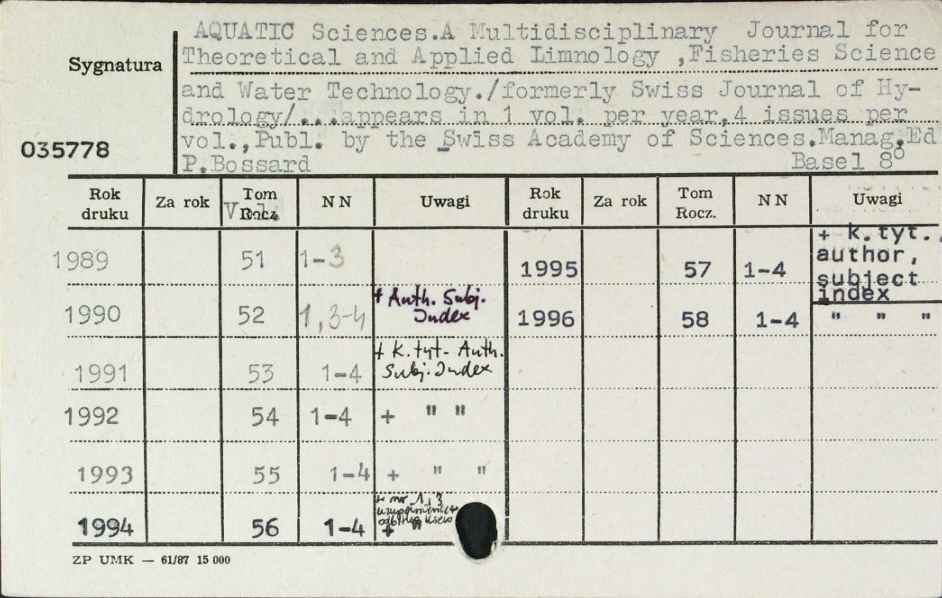 AQUATIC Sciences.A Multidisciplinary Journal for
Sygnatura Theoretical and Applied Limnology ,Fisheries Science
and Water Technology./formerly Swiss Journal of Hy-
drology/...appears in 1 vol. per year,4 issues per
035778 vol.,Publ. by the Swiss Academy of Sciences.Manag.Ed
P.Bossard Basel 8°
Rok druku Za rok Tom Rocz. Vol. NN Uwagi Rok druku Za rok Tom Rocz. NN Uwagi
1989 51 1-3 1995 57 1-4 + k.tyt., author, subject index
1990 52 1,3-4 + Auth. Subj. Index 1996 58 1-4 " " "
1991 53 1-4 + k.tyt. Auth. Subj. Index
1992 54 1-4 + " "
1993 55 1-4 + " "
1994 56 1-4 + nr 1,3 + "
ZP UMK — 61/87 15 000